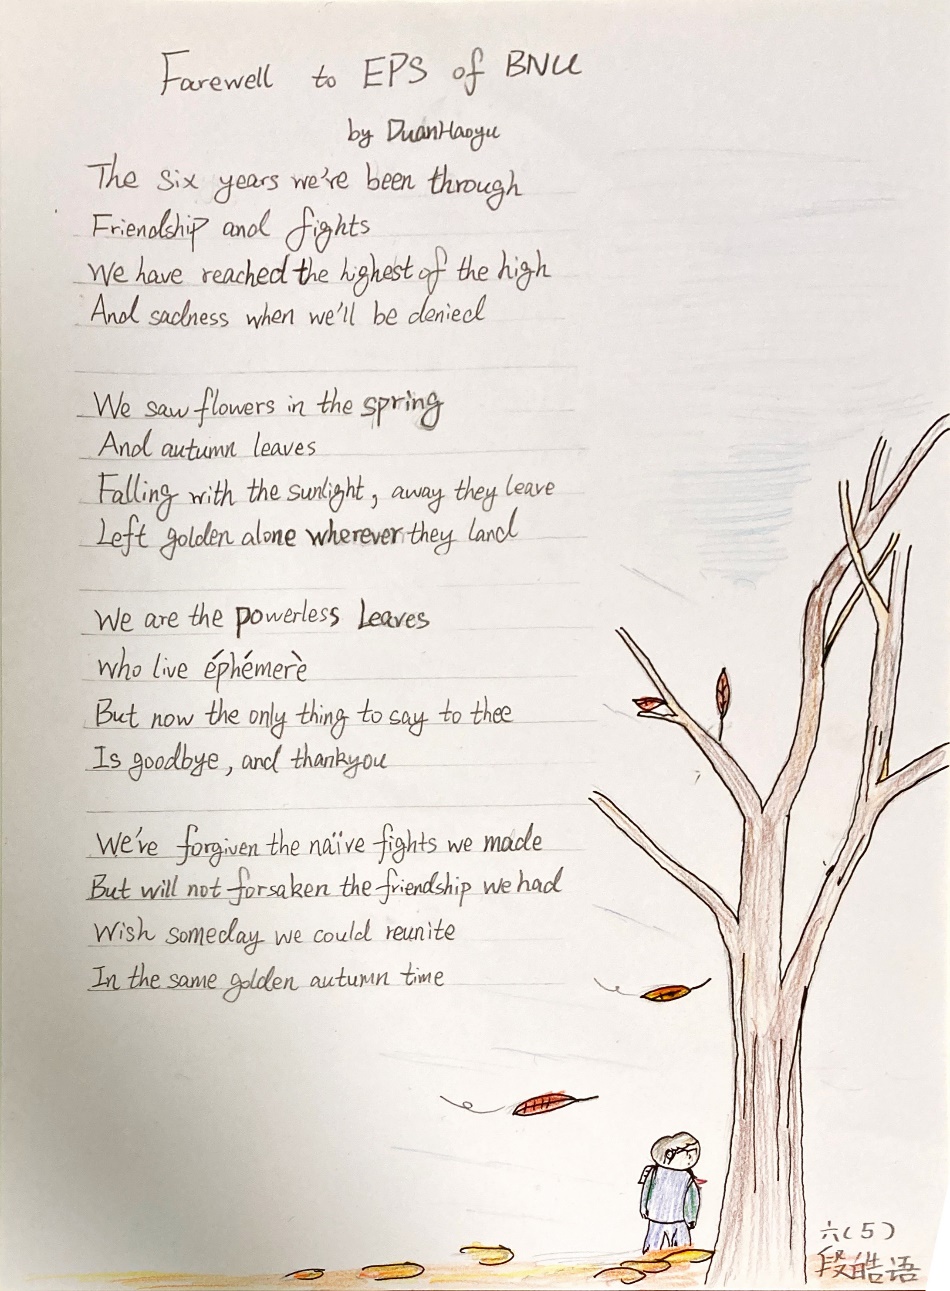 Farewell to EPS of BNU
by DuanHaoyu
The six years we're been through
Friendship and fights
We have reached the highest of the high
And sadness when we'll be denied
We saw flowers in the spring
And autumn leaves
Falling with the sunlight, away they leave
Left golden alone wherever they land
We are the powerless leaves
Who live éphémerè
But now the only thing to say to thee
Is goodbye, and thankyou
We've forgiven the naïve fights we made
But will not forsaken the friendship we had
Wish someday we could reunite
In the same golden autumn time
六(5)
段皓语